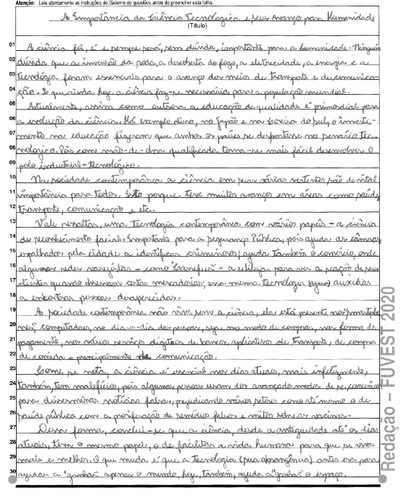 Atenção: Leia atentamente as instruções do Caderno de questões antes de preencher esta folha.
A Importância da Ciência Tecnológica e seus Avanço para Humanidade
(Título)
01 A ciência foi, é e sempre será, sem dúvida, importante para a humanidade. Ninguém
02 duvida que a invenção da roda, a descoberta do fogo, a eletricidade, a energia e a
03 tecnologia foram essenciais para o avanço dos meios de transporte e de comunica-
04 ção. E que ainda hoje a ciência faz-se necessária para a população mundial.
05 Atualmente, assim como outrora a educação de qualidade é primordial para
06 a evolução da ciência. Por exemplo disso, no Japão e na Coreia do sul, o investi-
07 mento na educação fizeram que ambos os países se despontasse no cenário tec-
08 nológico. Pois com mão-de-obra qualificada torna-se mais fácil desenvolver o
09 polo industrial-tecnológico.
10 Na sociedade contemporânea a ciência em suas várias vertentes são de vital
11 importância para todos. Isto porque teve muitos avanços em áreas como saúde,
12 transporte, comunicação e etc.
13 Vale ressaltar, uma tecnologia contemporânea com vários papéis - a ciência
14 do reconhecimento facial. Importante para a segurança Pública, pois ajuda as câmeras
15 espalhadas pela cidade a identificar criminosos; ajuda também o comércio, onde
16 algumas redes varejistas - como "Carrefour" - a utiliza para ver a reação de seus
17 clientes quando observam certas mercadorias; essa mesma tecnologia auxiliar
18 a encontrar pessoas desaparecidas.
19 A sociedade contemporânea não vive sem a ciência, ela está presente nos "smartpho-
20 nes", computadores, no dia-a-dia das pessoas, seja no modo de compras, nas formas de
21 pagamento, nos vários serviços digitais de bancos, aplicativos de transporte, de compra
22 de comida e principalmente de comunicação.
23 Como se nota, a ciência é essencial nos dias atuais, mais infelizmente,
24 também, tem malefícios, pois algumas pessoas usam dos avançados modos de se comunicar
25 para disseminar notícias falsas, prejudicando vários setores como até mesmo o de
26 saúde pública com a proliferação de remédios falsos e mitos sobre as vacinas.
27 Dessa forma, conclui-se que a ciência, desde a antiguidade até os dias
28 atuais, tem o mesmo papel, o de facilitar a vida humana para que se viva
29 mais e melhor. O que muda é que a tecnologia antes era para
30 ajudar a "ganhar" apenas o mundo, hoje, também, ajuda a "ganhar" o espaço.
Redação – FUVEST 2020